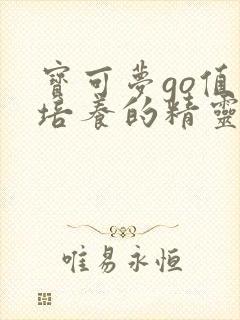 寶可夢go值
培養的精靈
唯易永恒